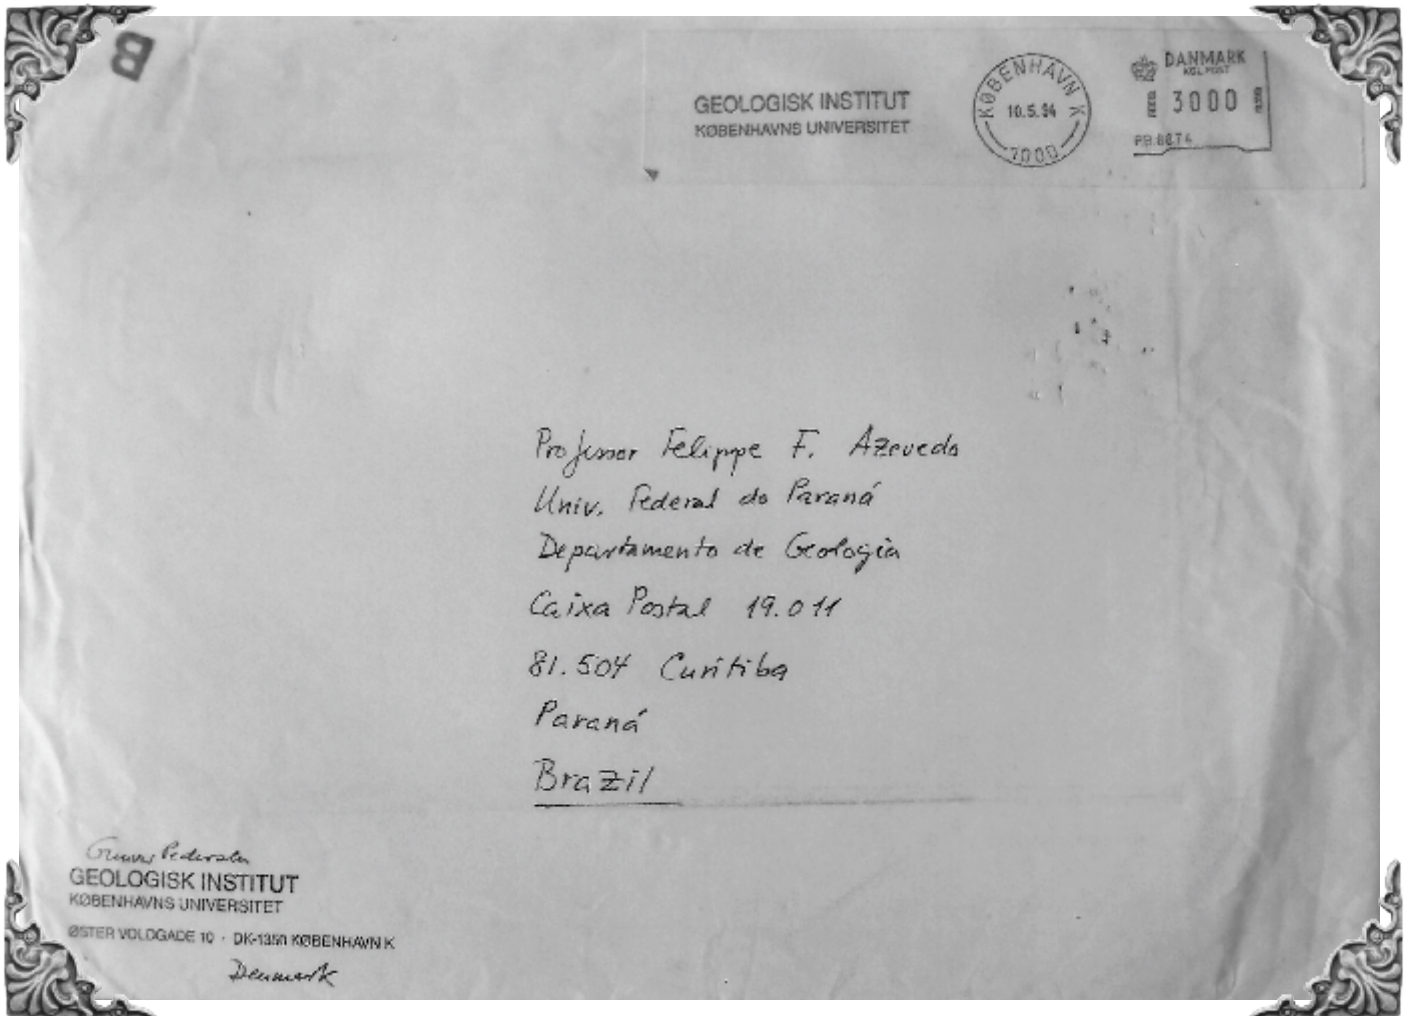 B
GEOLOGISK INSTITUT
KØBENHAVNS UNIVERSITET
KØBENHAVN K
10.5.94
1000
DANMARK
KGL POST
3000
PB 8074
Professor Felippe F. Azevedo
Univ. Federal do Paraná
Departamento de Geologia
Caixa Postal 19.011
81.504 Curitiba
Paraná
Brazil
Pedersen
GEOLOGISK INSTITUT
KØBENHAVNS UNIVERSITET
ØSTER VOLDGADE 10 · DK-1350 KØBENHAVN K
Denmark